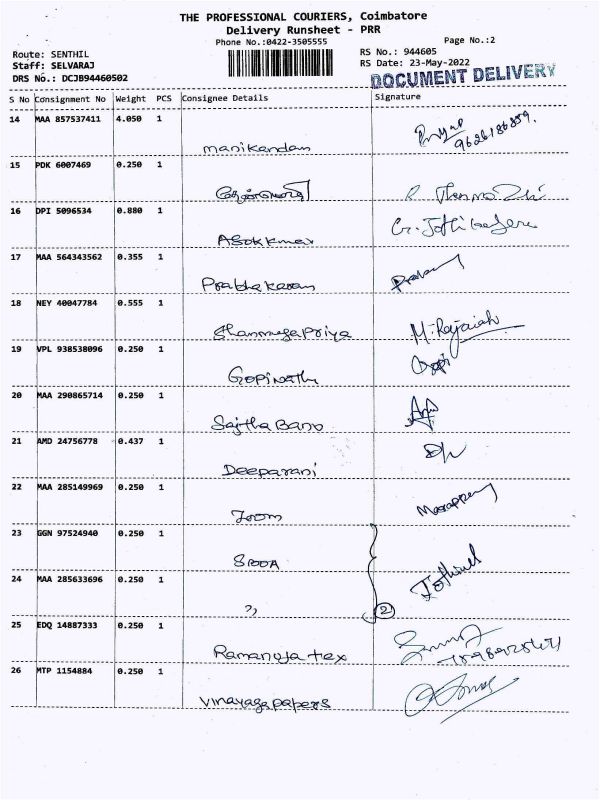 THE PROFESSIONAL COURIERS, Coimbatore
Delivery Runsheet - PRR
Phone No.:0422-3505555
Page No.:2
Route: SENTHIL
RS No.: 944605
Staff: SELVARAJ
RS Date: 23-May-2022
DRS No.: DCJB94460502
DOCUMENT DELIVERY
S No Consignment No Weight PCS Consignee Details Signature
14 MAA 857537411 4.050 1
manikandan 9626186859.
15 PDK 6007469 0.250 1
16 DPI 5096534 0.880 1
Asokkumar
17 MAA 564343562 0.355 1
Prabhakaran
18 NEY 40047784 0.555 1
Shanmugapriya M. Rajaiah
19 VPL 938538096 0.250 1
Gopinath Gopi
20 MAA 290865714 0.250 1
Sajitha Bano
21 AMD 24756778 0.437 1
Deeparani
22 MAA 285149969 0.250 1
Zoom
23 GGN 97524940 0.250 1
24 MAA 285633696 0.250 1
" 2
25 EDQ 14887333 0.250 1
Ramanuja tex
26 MTP 1154884 0.250 1
vinayaga papers